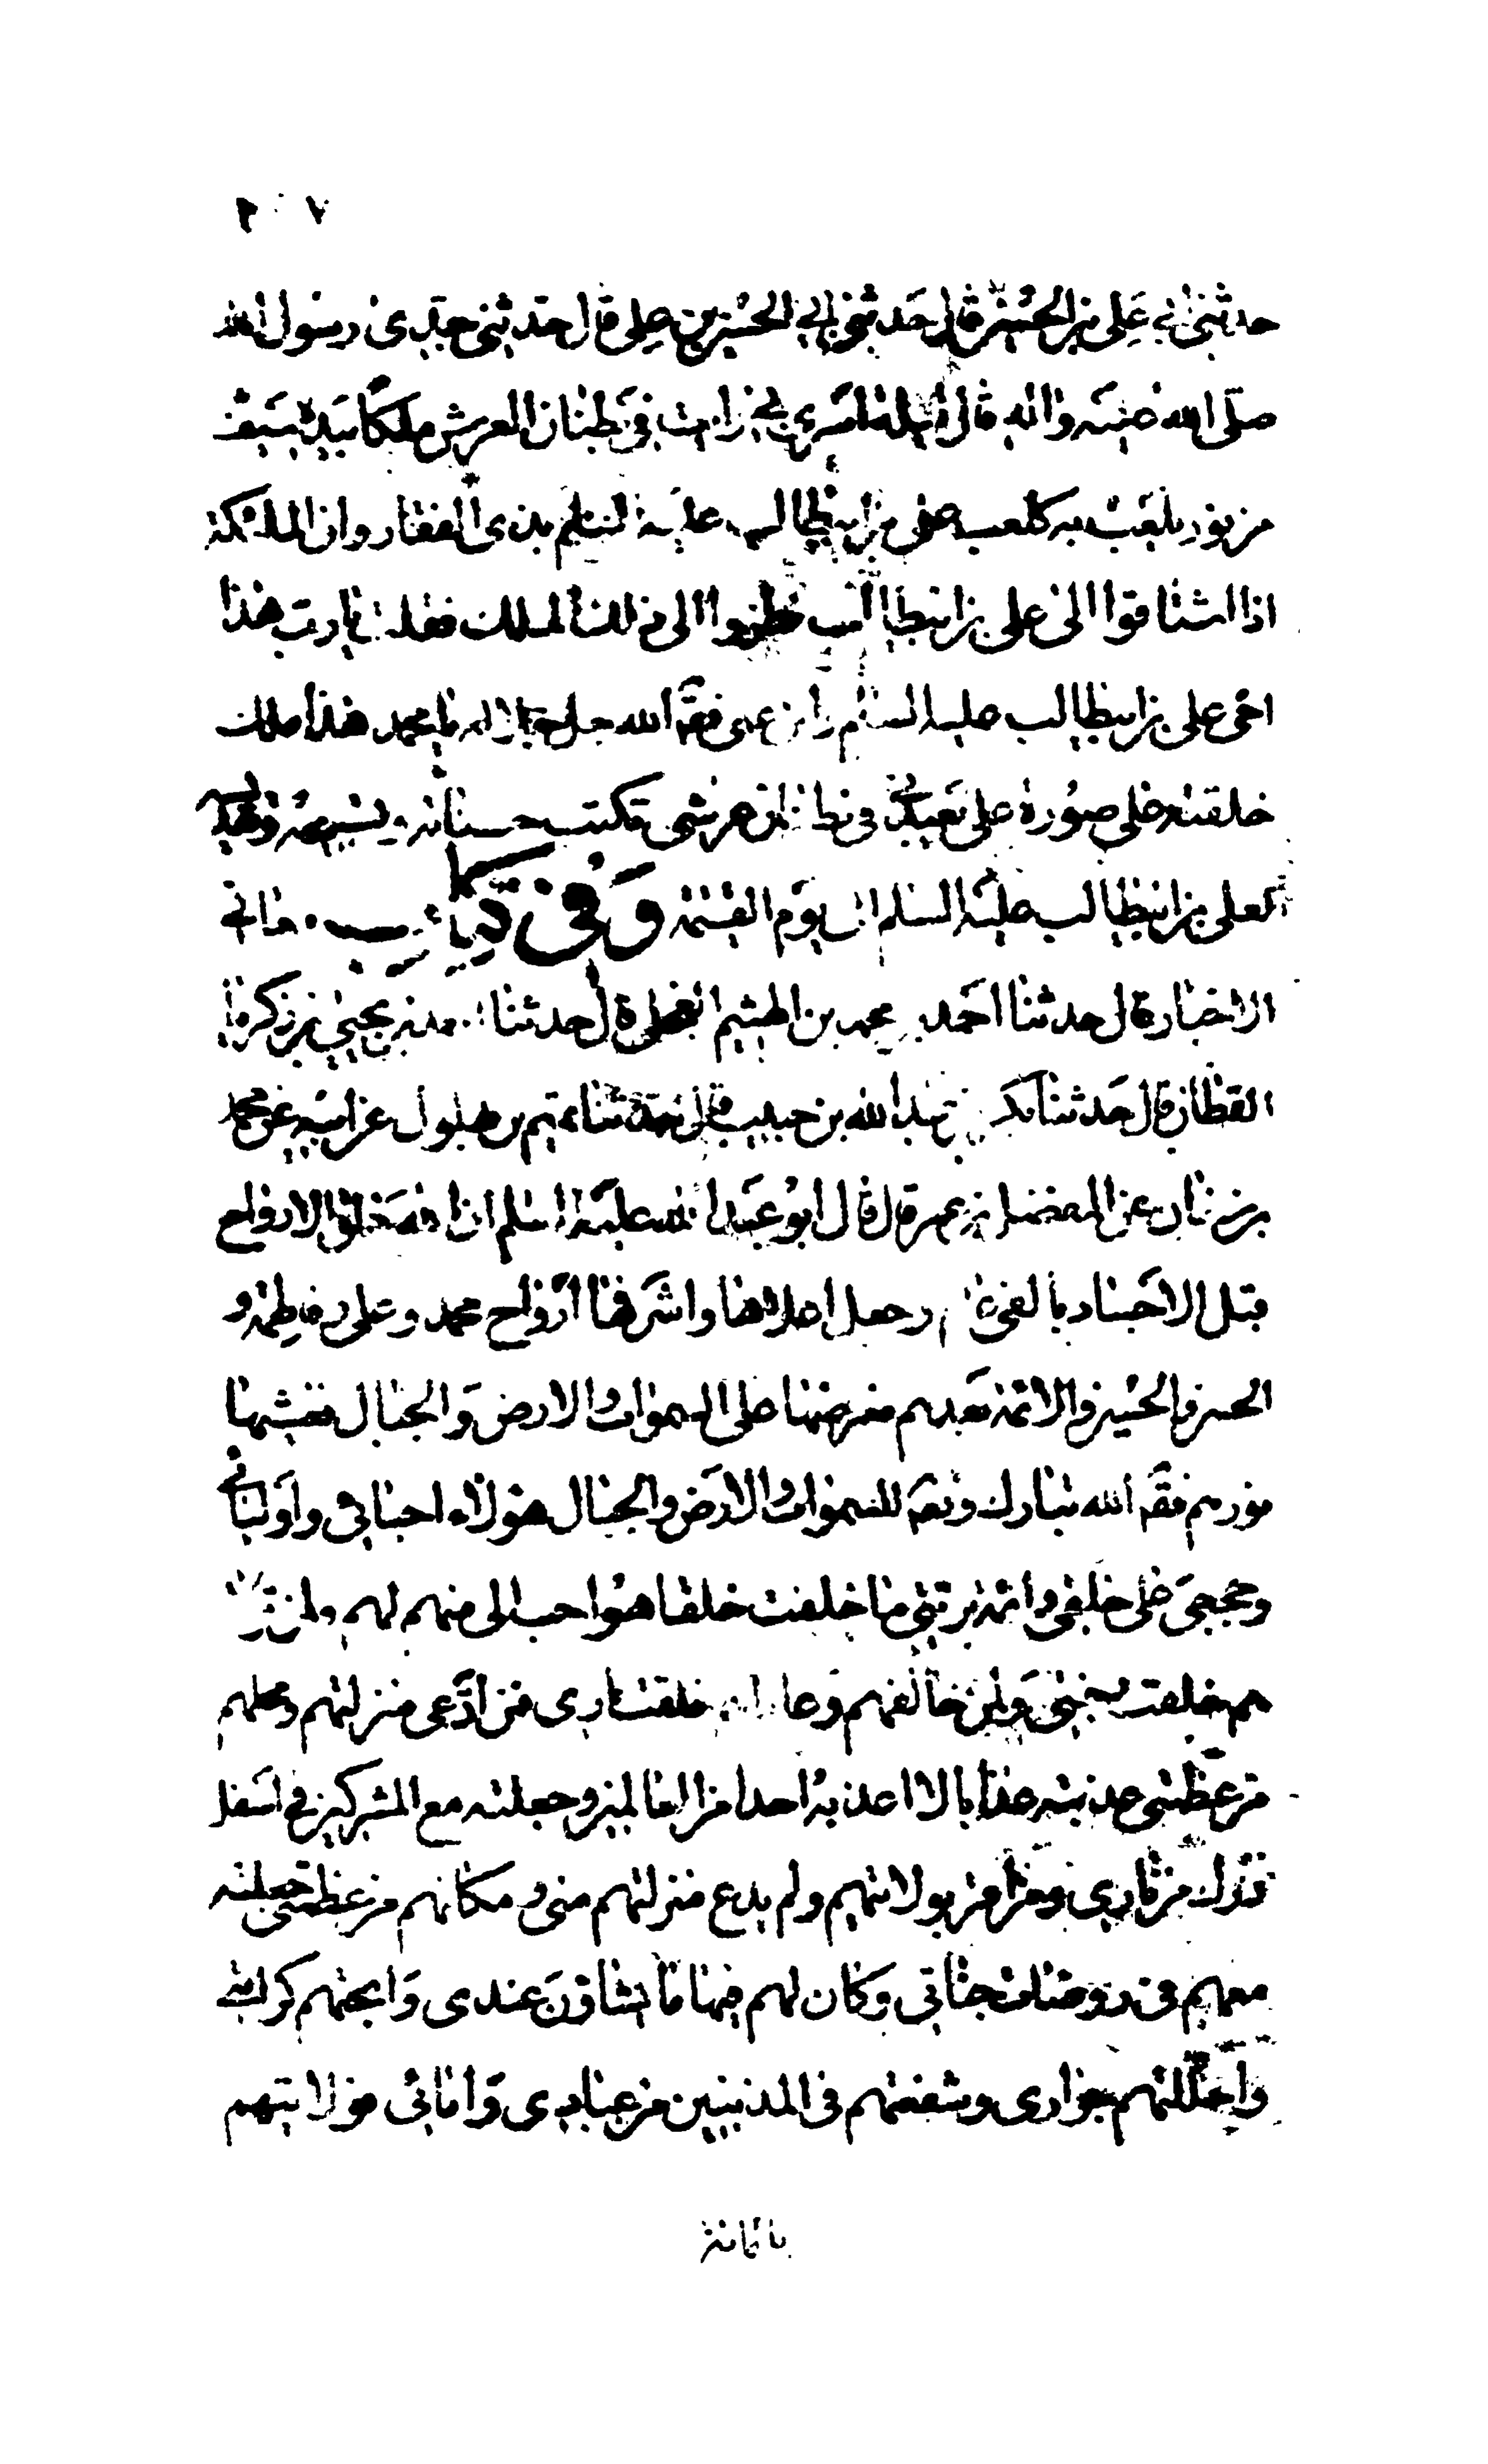 ٢٠٧
حدثني ابي علي بن الحسين قال حدثني ابي الحسين بن علي قال حدثني جدي رسول الله
صلى الله عليه واله قال ليلة اسري بي رايت في بطنان العرش ملكا بيده سيف
من نور يلعب به كما يلعب علي بن ابيطالب عليه السلم بذي الفقار وان الملائكة
اذا اشتاقوا الى علي بن ابيطالب نظروا الى ذلك الملك فقلت يا رب هذا
اخي علي بن ابيطالب عليه السلام وابن عمي فقال الله جل جلاله يا محمد هذا ملك
خلقته على صورة علي يعبدني في بطنان عرشي تكتب حسناته وتسبيحه وتقديسه
لعلي بن ابيطالب عليه السلم الى يوم القيمة وفي كتاب معاني
الاخبار قال حدثنا احمد بن محمد بن الهيثم العجلي قال حدثنا احمد بن يحيى بن زكريا
القطان قال حدثنا بكر بن عبد الله بن حبيب قال حدثنا تميم بن بهلول عن ابيه عن محمد
بن سنان عن المفضل بن عمر قال قال ابو عبد الله عليه السلم ان الله خلق الارواح
قبل الاجساد بالفي عام وجعل اعلاها واشرفها ارواح محمد وعلي وفاطمة و
الحسن والحسين والائمة بعدهم فعرضها على السموات والارض والجبال فغشيها
نورهم فقال الله تبارك وتعالى للسموات والارض والجبال هؤلاء احبائي واوليائي
وحججي على خلقي وائمة بريتي ما خلقت خلقا هو احب الي منهم لهم ولمن
هم خلقت جنتي ولمن خالفهم وعاداهم خلقت ناري فمن ادعى منزلتهم ومحلهم
من عظمتي عذبته عذابا لا اعذبه احدا من العالمين وجعلته مع المشركين في اسفل
درك من ناري ومن اقر بولايتهم ولم يدع منزلتهم مني ومكانهم من عظمتي جعلته
معهم في روضات جناتي وكان لهم فيها ما يشاؤن عندي وابحتهم كرامتي
واحللتهم جواري وشفعتهم في المذنبين من عبادي وامائي فولايتهم